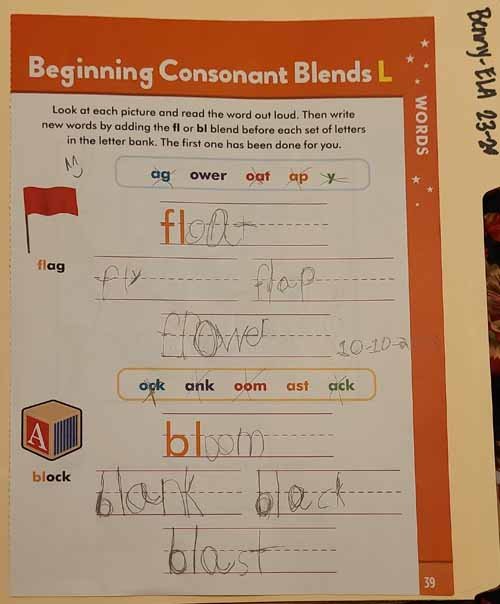 Beginning Consonant Blends L
Look at each picture and read the word out loud. Then write
new words by adding the fl or bl blend before each set of letters
in the letter bank. The first one has been done for you.
ag ower oat ap y
float
flag
fly flap
flower
10-10-2
ock ank oom ast ack
A
bloom
block
blank black
blast
39
WORDS
Benny-ELA 23-24